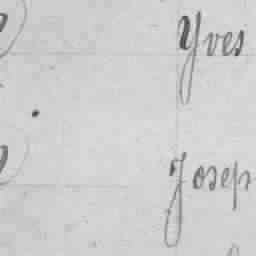 Yves
Josep